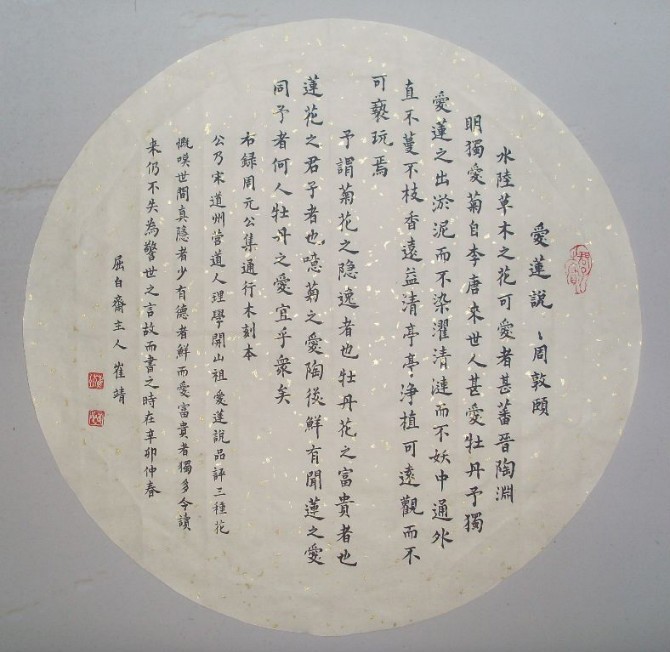 愛蓮說、周敦頤
水陸草木之花可愛者甚蕃晉陶淵
明獨愛菊自李唐來世人甚愛牡丹予獨
愛蓮之出淤泥而不染濯清漣而不妖中通外
直不蔓不枝香遠益清亭亭淨植可遠觀而不
可褻玩焉
予謂菊花之隐逸者也牡丹花之富貴者也
蓮花之君子者也噫菊之愛陶後鮮有聞蓮之愛
同予者何人牡丹之愛宜乎衆矣
右録周元公集通行木刻本
公乃宋道州營道人理學開山祖愛蓮說品評三種花
慨嘆世間真隐者少有德者鮮而愛富貴者獨多今讀
来仍不失為警世之言故而書之時在辛卯仲春
屈白齋主人崔靖